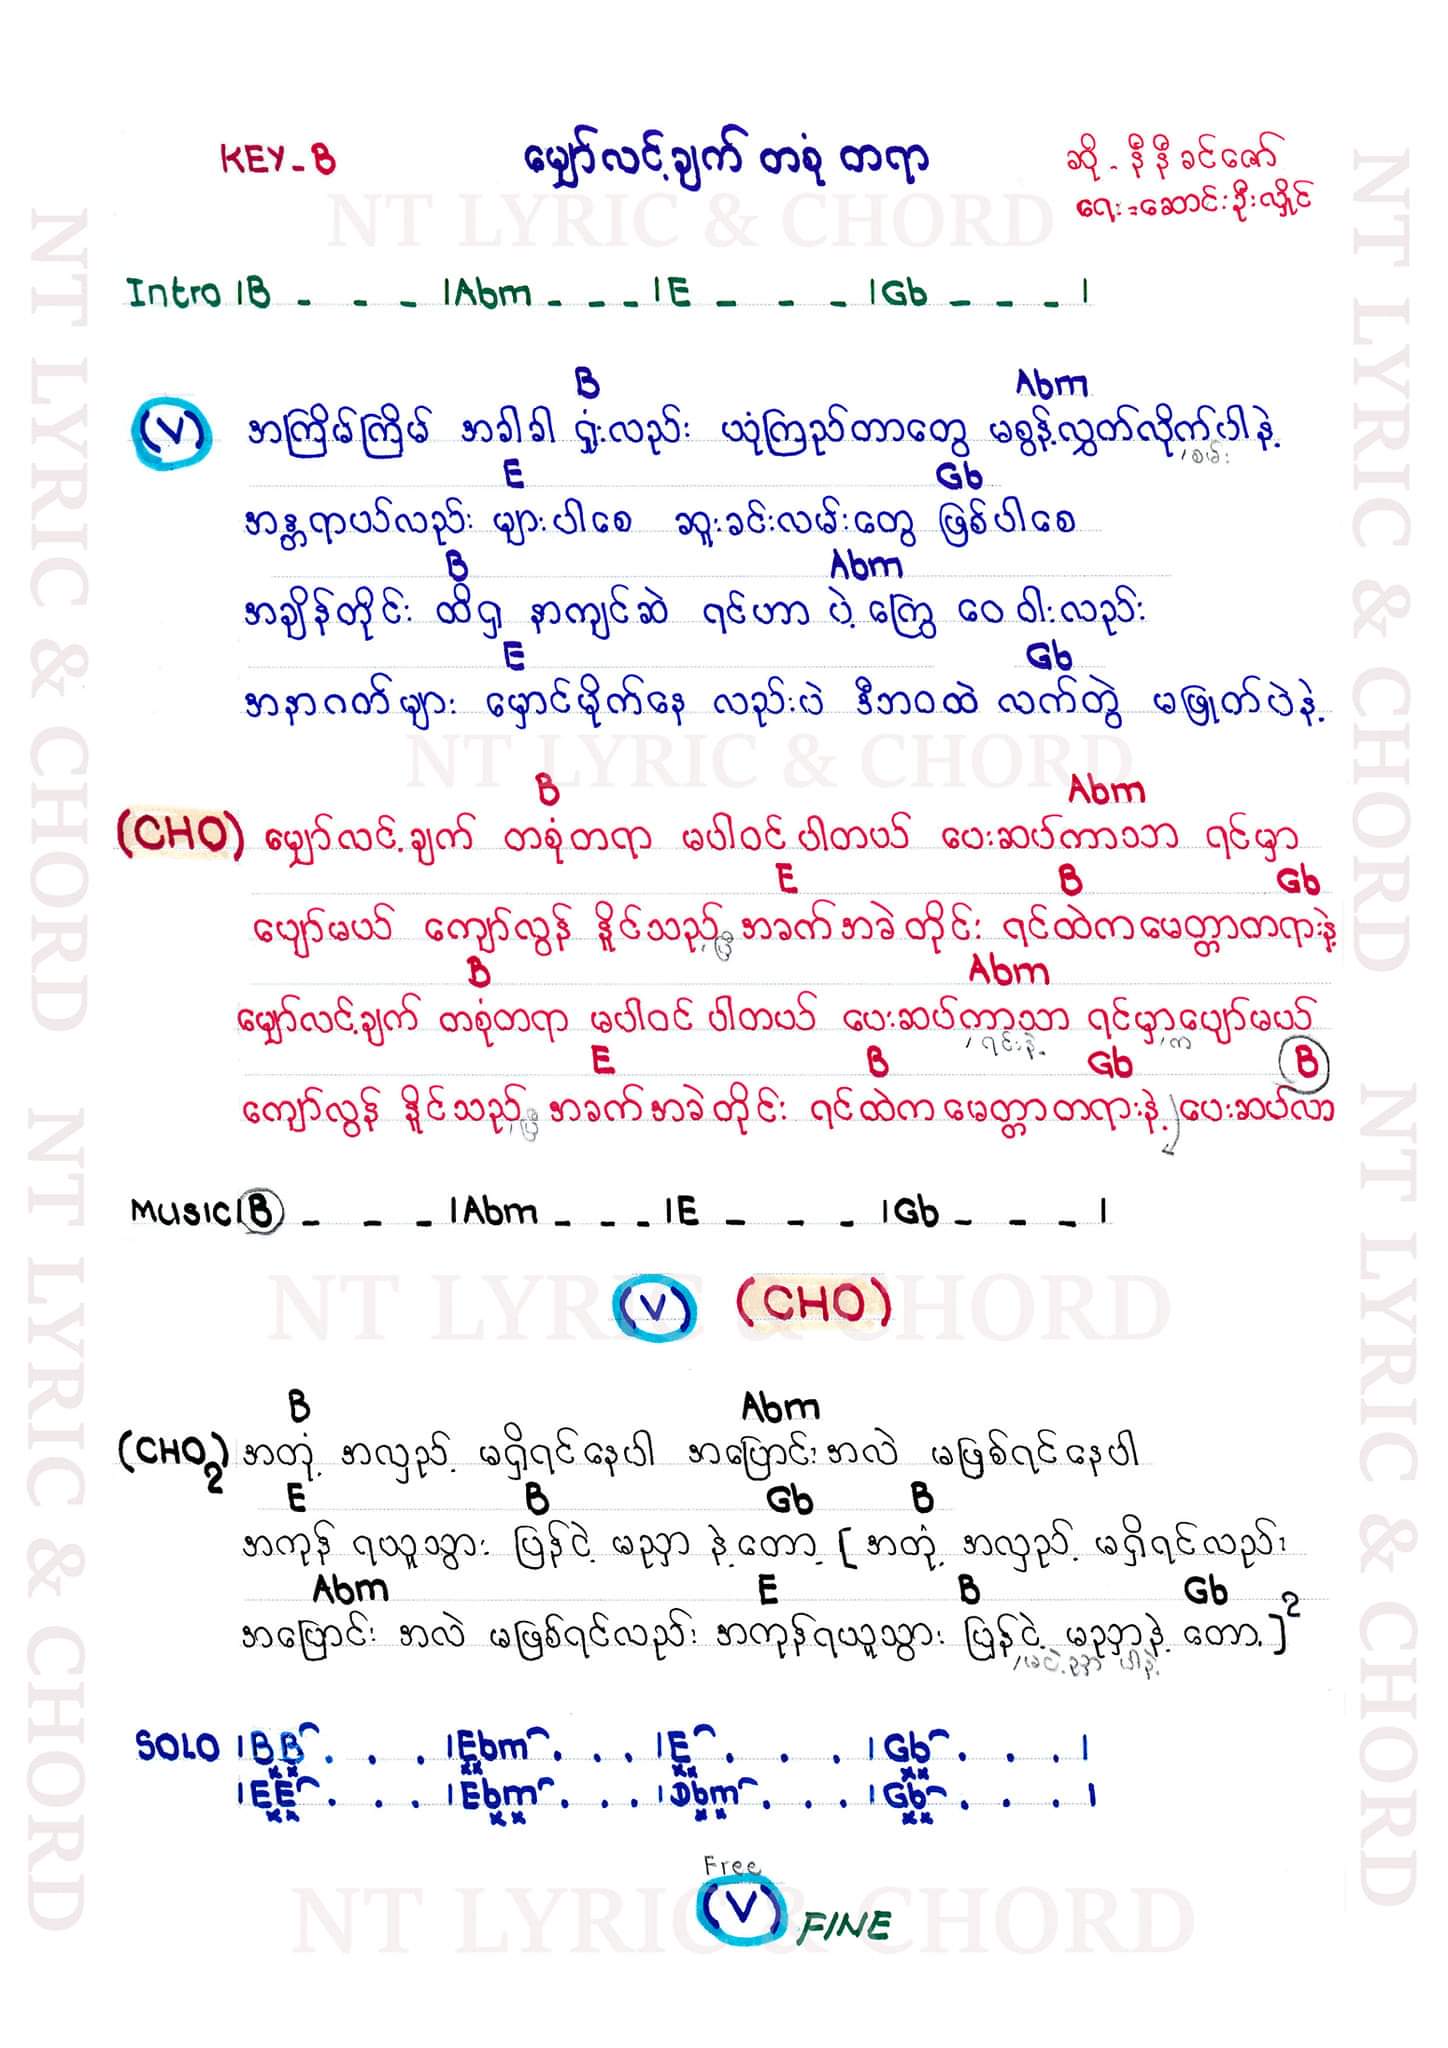 KEY-B
မျှော်လင့်ချက် တစုံ တရာ
ဆို - နီနီခင်ဇော်
ရေး = ဆောင်းဦးလှိုင်
NT LYRIC & CHORD
Intro |B - - - |Abm - - - |E - - - |Gb - - - |
B Abm
(V) အကြိမ်ကြိမ် အခါခါ ရှုံးလည်း ယုံကြည်တာတွေ မစွန့်လွှတ်လိုက်ပါနဲ့
E Gb
အန္တရာယ်လည်း များပါစေ ဆူးခင်းလမ်းတွေ ဖြစ်ပါစေ
B Abm
အချိန်တိုင်း ထိရှ နာကျင်ဆဲ ရင်ဟာ ပဲ့ကြွေ ဝေဝါးလည်း
E Gb
အနာဂတ်များ မှောင်မိုက်နေ လည်းပဲ ဒီဘဝထဲ လက်တွဲ မဖြုတ်ပဲနဲ့
NT LYRIC & CHORD
B Abm
(CHO) မျှော်လင့်ချက် တစုံတရာ မပါဝင်ပါတယ် ပေးဆပ်ကာသာ ရင်မှာ
E B Gb
ပျော်မယ် ကျော်လွန် နိူင်သည့် အခက်အခဲတိုင်း ရင်ထဲကမေတ္တာတရားနဲ့
B Abm
မျှော်လင့်ချက် တစုံတရာ မပါဝင်ပါတယ် ပေးဆပ်ကာသာ ရင်မှာပျော်မယ်
ရင်းနဲ့ က
E B Gb B
ကျော်လွန် နိူင်သည့် အခက်အခဲတိုင်း ရင်ထဲကမေတ္တာတရားနဲ့ ပေးဆပ်လာ
MUSIC |B - - - |Abm - - - |E - - - |Gb - - - |
NT LYRIC & CHORD
(V) (CHO)
B Abm
(CHO2) အတုံ့ အလှည့် မရှိရင်နေပါ အပြောင်းအလဲ မဖြစ်ရင်နေပါ
E B Gb B
အကုန် ရယူသွား ပြန်ငဲ့ မညှာ နဲ့တော့ [ အတုံ့ အလှည့် မရှိရင်လည်း
Abm E B Gb
အပြောင်း အလဲ မဖြစ်ရင်လည်း အကုန်ရယူသွား ပြန်ငဲ့ မညှာနဲ့ တော့ ]2
မငဲ့ညှာ ပါနဲ့
SOLO |BB . . . |Ebm . . . |E . . . |Gb . . . |
|EE . . . |Ebm . . . |Dbm . . . |Gb . . . |
Free
(V) FINE
NT LYRIC & CHORD
NT LYRIC & CHORD
NT LYRIC & CHORD
NT LYRIC & CHORD
NT LYRIC & CHORD